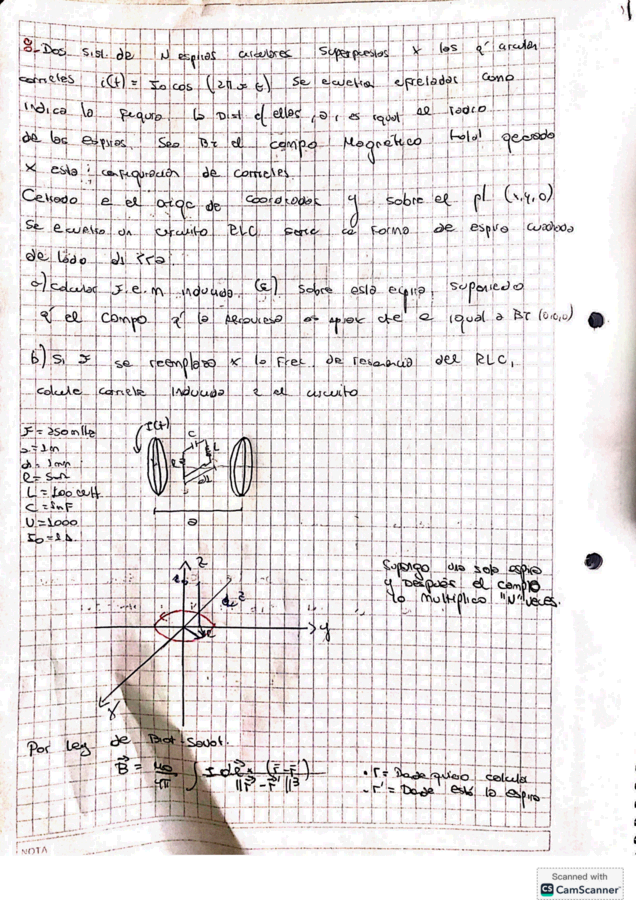 8- Dos sist. de N espiras circulares superpuestos x los q' circulan
corrientes i(t) = Io cos (2π x t) se encuentran enfrentadas como
indica la figura. la Dist e/ ellas, a, es igual al radio
de las espiras. Sea BT el campo Magnético total generado
x esta configuración de corrientes.
Centrado en el origen de coordenadas y sobre el pl (x,y,0)
se encuentra un circuito RLC serie en forma de espira cuadrada
de lado
a) calcular F.e.m inducida (ε) sobre esta espira, suponiendo
q' el campo q' la atraviesa es aprox cte e igual a BT (0,0,0)
b) Si F se reemplaza x la Frec. de resonancia del RLC,
calcule corriente inducida en el circuito
F = 250 mHz
a = 1m
dl = 1mm
R = 5mΩ
L = 100
C = 1nF
N = 1000
Io = 1A
I(t)
C
L
R
dl
a
Supongo una sola espira
y después el campo
lo multiplico "N" veces.
z
y
x
Por ley de Biot-Savart.
B = μo/4π ∫ I dl x (r - r') / ||r - r'||³
• r = Donde quiero calcular
• r' = Donde está la espira
NOTA
Scanned with
CS CamScanner